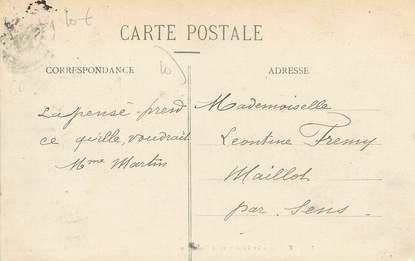 CARTE POSTALE
CORRESPONDANCE
ADRESSE
La pensé prend
ce qu'elle, voudrait
Mme Martin
Mademoiselle
Leontine Fremy
Maillot
par Sens